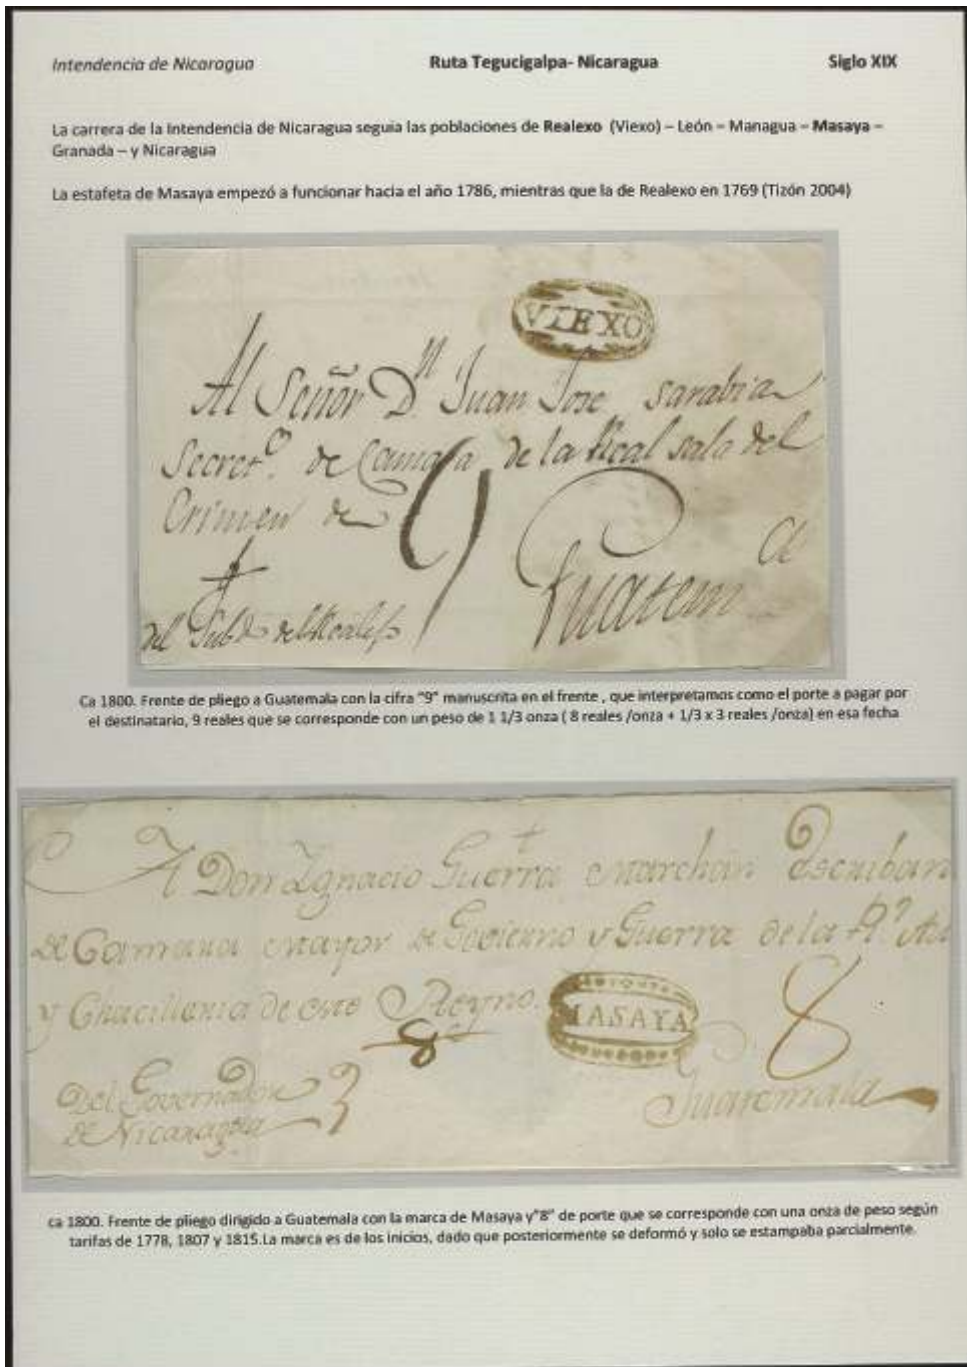 Intendencia de Nicaragua Ruta Tegucigalpa- Nicaragua Siglo XIX
La carrera de la Intendencia de Nicaragua seguia las poblaciones de Realexo (Viexo) – León – Managua – Masaya –
Granada – y Nicaragua
La estafeta de Masaya empezó a funcionar hacia el año 1786, mientras que la de Realexo en 1769 (Tizón 2004)
VIEXO
Al Señor Dn. Juan Jose sarabia
Secreto. de Camara de la Real sala del
Crimen de 9
Guatem a
del Subdo del Realejo
Ca 1800. Frente de pliego a Guatemala con la cifra "9" manuscrita en el frente , que interpretamos como el porte a pagar por
el destinatario, 9 reales que se corresponde con un peso de 1 1/3 onza ( 8 reales /onza + 1/3 x 3 reales /onza) en esa fecha
A Don Ygnacio Guerra Marchan Escriban
de Camara Mayor de Govierno y Guerra de la Rl. Au
y Chacilleria de este Reyno.
MASAYA
8
8
Del Governador 3
de Nicaragua
Guatemala
ca 1800. Frente de pliego dirigido a Guatemala con la marca de Masaya y"8" de porte que se corresponde con una onza de peso según
tarifas de 1778, 1807 y 1815.La marca es de los inicios, dado que posteriormente se deformó y solo se estampaba parcialmente.